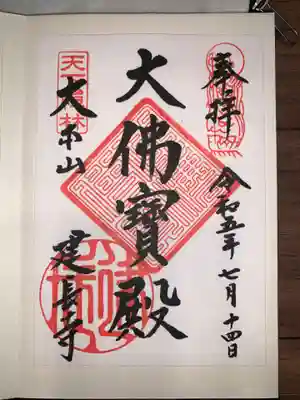 奉拝
令和五年七月十四日
大佛寶殿
天下禅林
大本山
建長寺